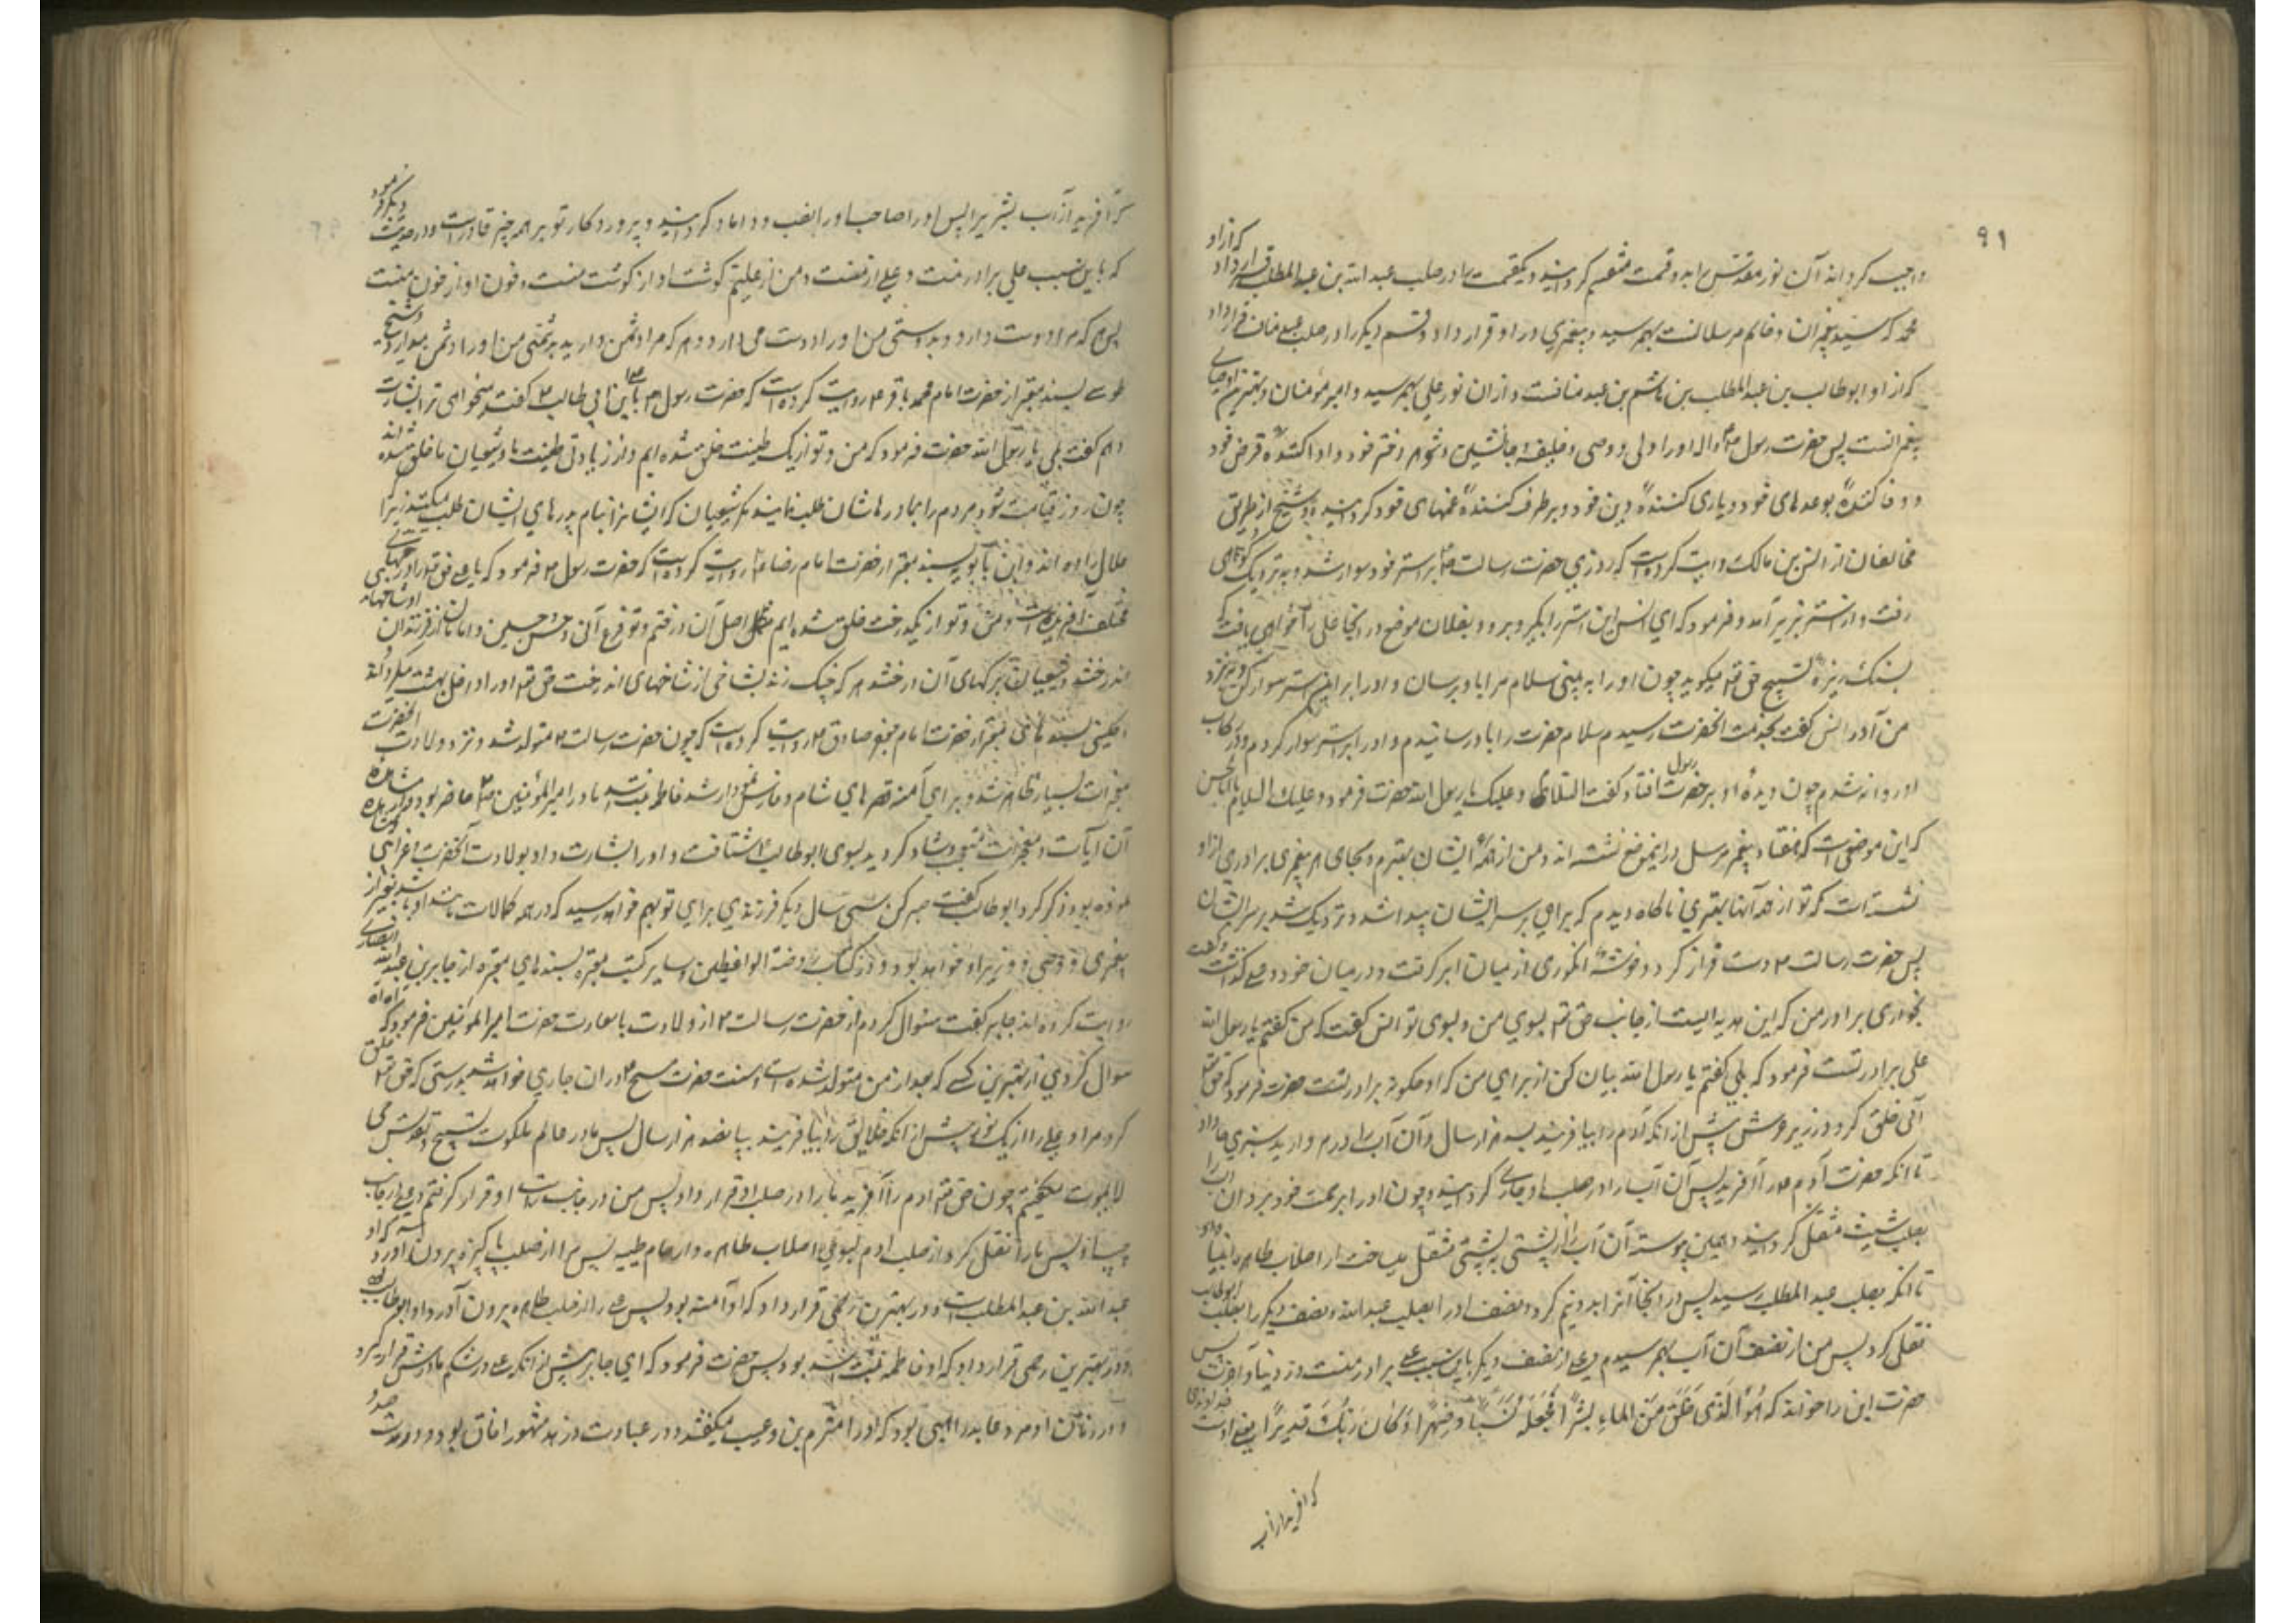 ۹۱
واجب کرد انه آن نور مقدس را بدو قسمت منقسم کردانید و یکقسمت را در صلب عبد الله بن عبد المطلب قرار داد که از او
محمد که سید پیغمبران و خاتم مرسلانست بهم رسید و پیغمبری در او قرار داد و قسم دیگر را در صلب عبد مناف قرار داد
که از او ابو طالب بن عبد المطلب بن هاشم بن عبد منافست و از ان نور علی بهم رسید و امیر مؤمنان و بهترین اوصیای
پیغمبرانست پس حضرت رسول او را ولی و وصی و خلیفه و جانشین و شوهر دختر خود و ادا کننده قرض خود
و وفا کننده بوعدهای خود و یاری کننده دین خود و بر طرف کننده غمهای خود کردانید و شیخ از طریق
مخالفان از انس بن مالک روایت کرده است که روزی حضرت رسالت بر استر خود سوار شد و به نزدیک کوهی
رفت و از استر بزیر آمد و فرمود که ای انس این استر را بگیر و برو و بفلان موضع در انجا علی را خواهی یافت که
بسنگ ریزه تسبیح حق تع میکوید چون او را به بینی سلام مرا باو برسان و او را بر این استر سوار کن و بنزد
من آور انس کفت بخدمت انحضرت رسیدم سلام حضرت را باو رسانیدم و او را بر استر سوار کردم و در رکاب
او روانه شدم چون دیده او بر حضرت رسول افتاد کفت السلام علیک یا رسول الله حضرت فرمود و علیک السلام یا ابا الحسن
که این موضعی است که هفتاد پیغمبر مرسل در اینموضع نشسته اند و من از همه ایشان بهترم و بجای هر پیغمبری برادری از او
نشسته است که تو از همه آنها بهتری ناکاه دیدم که ابری بر سر ایشان پیدا شد و نزدیک شد بر سر ایشان
پس حضرت رسالت دست دراز کرد و خوشه انکوری از میان ابر کرفت و در میان خود و علی کذاشت و کفت
بخور ای برادر من که این هدیه ایست از جانب حق تع بسوی من و بسوی تو انس کفت که من کفتم یا رسول الله
علی برادر تست فرمود که بلی کفتم یا رسول الله بیان کن از برای من که او چکونه برادر تست حضرت فرمود که حق تع
آبی خلق کرد در زیر عرش پیش از انکه آدم را بیافریند بسه هزار سال و آن آب را در مروارید سبزی جا داد
تا انکه حضرت آدم را آفرید پس آن آب را در صلب او جاری کردانید و چون او را برحمت خود برد آن آب را
بصلب شیث منتقل کردانید و همچنین پیوسته آن آب از پشتی به پشتی منتقل میساخت از اصلاب طاهره انبیا
تا انکه بصلب عبد المطلب رسید پس در انجا آنرا بدو نیم کرد و نصف او را بصلب عبد الله و نصف دیکر را بصلب ابو طالب
نقل کرد پس من از نصف آن آب بهم رسیدم و علی از نصف دیکر باین سبب علی برادر منست در دنیا و آخرت پس
حضرت این را خواند که هُوَ الَّذی خَلَقَ مِنَ الماءِ بَشَراً فَجَعَلَهُ نَسَباً وَ صِهراً وَ کانَ رَبُّکَ قدیراً یعنی اوست خداوندی
که آفرید از آب
که آفرید از آب بشر پس او را صاحب نسب و داماد کردانید و پروردکار تو بر همه چیز قادر است و در حدیث دیکر فرمود
که باین سبب علی برادر منست و علی از منست و من از علیم کوشت او از کوشت منست و خون او از خون منست
پس هر که مرا دوست دارد بدوستی من او را دوست میدارد و هر که مرا دشمن دارد بدشمنی من او را دشمن میدارد و شیخ
طوسی بسند معتبر از حضرت امام محمد باقر روایت کرده است که حضرت رسول با علی بن ابی طالب کفت میخواهی ترا بشارت
دهم کفت بلی یا رسول الله حضرت فرمود که من و تو از یک طینت خلق شده ایم و از زیادتی طینت ما شیعیان ما خلق شده اند
چون روز قیامت شود مردم را بمادرهاشان طلب نمایند مکر شیعیان که ایشانرا بنام پدرهای ایشان طلب میکنند زیرا که
حلال زاده اند و ابن بابویه بسند معتبر از حضرت امام رضا روایت کرده است که حضرت رسول فرمود که یا علی حق تع مردم را از درختهای
مختلف آفریده است و من و تو از یکدرخت خلق شده ایم من اصل آن درختم و تو فرع آنی و حسن و حسین و امامان از فرزندان او شاخهای
اندرختند و شیعیان ما برکهای آن درختند هر که چنک زند بشاخی از شاخهای اندرخت حق تع او را داخل بهشت میکرداند و
کلینی بسندهای معتبر از حضرت امام جعفر صادق روایت کرده است که چون حضرت رسالت متولد شد و نزد ولادت انحضرت
معجزات بسیار ظاهر شد و برای آمنه قصرهای شام و فارس نمودار شد فاطمه بنت اسد مادر امیر المؤمنین حاضر بود و از مشاهده
آن آیات و معجزات متعجب و شاد کردید بسوی ابو طالب شتافت و او را بشارت داد بولادت انحضرت و غرایبی که مشاهده
نموده بود ذکر کرد ابو طالب کفت صبر کن سی سال دیکر فرزندی برای تو بهم خواهد رسید که در همه کمالات مانند او باشد بغیر از
پیغمبری و وصی و وزیر او خواهد بود و در کتاب روضة الواعظین و سایر کتب معتبره بسندهای معتبره از جابر بن عبد الله انصاری
روایت کرده اند جابر کفت سئوال کردم از حضرت رسالت از ولادت با سعادت حضرت امیر المؤمنین فرمود که آه آه
سوال کردی از بهترین کسی که بعد از من متولد شده است و سنت حضرت مسیح در ان جاری خواهد شد بدرستی که حق تع خلق
کرد مرا و علی را از یک نور پیش از انکه خلایق را بیافریند بپانصد هزار سال پس ما در عالم ملکوت تسبیح و تقدیس حی
لا یموت میکفتیم چون حق تع آدم را آفرید ما را در صلب او قرار داد پس من در جانب راست او قرار کرفتم و علی در جانب
چپ او پس ما را نقل کرد از صلب آدم بسوی اصلاب طاهره و ارحام طیبه پس مرا از صلب پاکیزه بیرون آورد که او
عبد الله بن عبد المطلب است و در بهترین رحمی قرار داد که او آمنه بود پس علی را از صلب طاهر بیرون آورد که او ابو طالب است
و در بهترین رحمی قرار داد که او فاطمه بنت اسد بود پس حضرت فرمود که ای جابر پیش از انکه علی در شکم مادرش قرار کیرد
در زمان او مرد عابد راهبی بود که او را مثرم بن دعیب میکفتند و در عبادت و زهد مشهور آفاق بود و صد